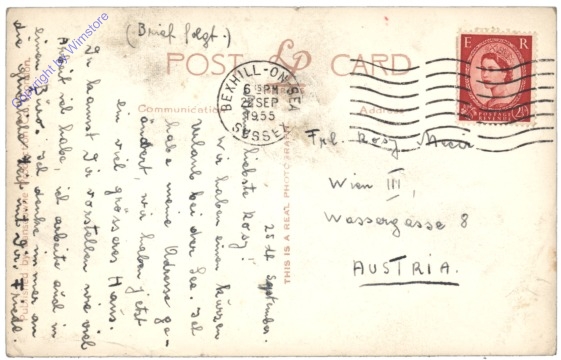 (Brief folgt.)
POST CARD
Communication
Address
BEXHILL-ON-SEA
6 15 PM
28 SEP
1955
SUSSEX
E R
POSTAGE REVENUE
2½D
Frl. Rosy Meier
Wien III,
Wassergasse 8
AUSTRIA.
THIS IS A REAL PHOTOGRAPH
28th September.
Liebste Rosy!
Wir haben einen kurzen
Urlaub bei der See. Ich
habe meine Adresse ge-
ändert, wir haben jetzt
ein viel grösseres Haus.
Du kannst Dir vorstellen wie viel
Arbeit ich habe, ich arbeite auch in
einem Büro. Ich denke immer an
die Zeit mit Dir,
Copyright by Winstore
Published by